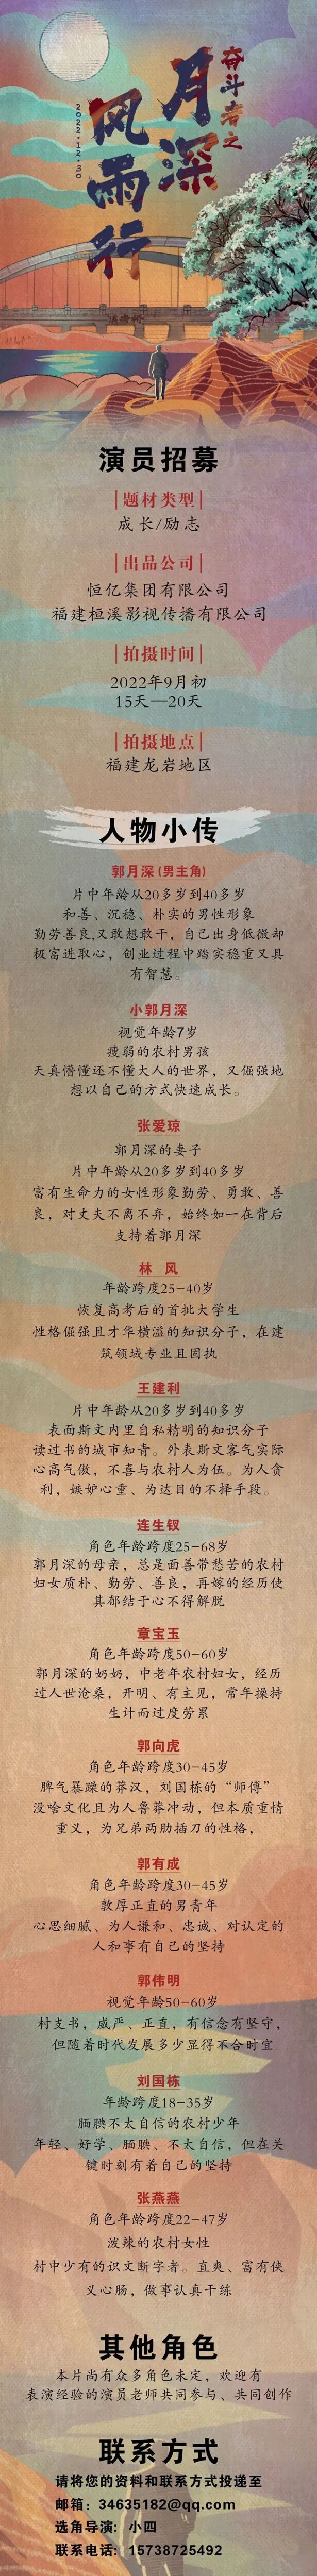 奋斗者之
月深
风雨行
2022.12.30
演员招募
题材类型
成长/励志
出品公司
恒亿集团有限公司
福建桓溪影视传播有限公司
拍摄时间
2022年9月初
15天—20天
拍摄地点
福建龙岩地区
人物小传
郭月深(男主角)
片中年龄从20多岁到40多岁
和善、沉稳、朴实的男性形象
勤劳善良,又敢想敢干，自己出身低微却
极富进取心，创业过程中踏实稳重又具
有智慧。
小郭月深
视觉年龄7岁
瘦弱的农村男孩
天真懵懂还不懂大人的世界，又倔强地
想以自己的方式快速成长。
张爱琼
郭月深的妻子
片中年龄从20多岁到40多岁
富有生命力的女性形象勤劳、勇敢、善
良，对丈夫不离不弃，始终如一在背后
支持着郭月深
林 风
年龄跨度25-40岁
恢复高考后的首批大学生
性格倔强且才华横溢的知识分子，在建
筑领域专业且固执
王建利
片中年龄从20多岁到40多岁
表面斯文内里自私精明的知识分子
读过书的城市知青。外表斯文客气实际
心高气傲，不喜与农村人为伍。为人贪
利，嫉妒心重、为达目的不择手段。
连生钗
角色年龄跨度25-68岁
郭月深的母亲，总是面善带愁苦的农村
妇女质朴、勤劳、善良，再嫁的经历使
其郁结于心不得解脱
章宝玉
角色年龄跨度50-60岁
郭月深的奶奶，中老年农村妇女，经历
过人世沧桑，开明、有主见，常年操持
生计而过度劳累
郭向虎
角色年龄跨度30-45岁
脾气暴躁的莽汉，刘国栋的“师傅”
没啥文化且为人鲁莽冲动，但本质重情
重义，为兄弟两肋插刀的性格，
郭有成
角色年龄跨度30-45岁
敦厚正直的男青年
心思细腻、为人谦和、忠诚、对认定的
人和事有自己的坚持
郭伟明
视觉年龄50-60岁
村支书，威严、正直，有信念有坚守，
但随着时代发展多少显得不合时宜
刘国栋
年龄跨度18-35岁
腼腆不太自信的农村少年
年轻、好学、腼腆、不太自信，但在关
键时刻有着自己的坚持
张燕燕
角色年龄跨度22-47岁
泼辣的农村女性
村中少有的识文断字者。直爽、富有侠
义心肠，做事认真干练
其他角色
本片尚有众多角色未定，欢迎有
表演经验的演员老师共同参与、共同创作
联系方式
请将您的资料和联系方式投递至
邮箱：34635182@qq.com
选角导演：小四
联系电话：15738725492